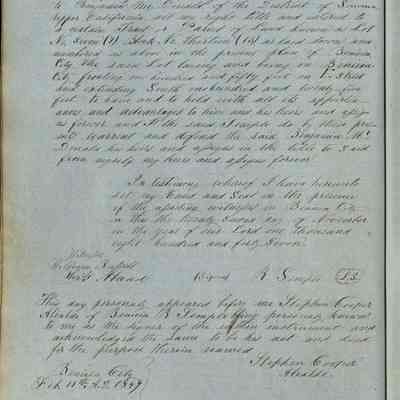 to Benjamin McDonald of the District of Sonoma
Upper California all my right title and interest to
a certain Tract or Parcel of Land known as Lot
No. Seven (7) Block No. Thirteen (13) as laid down and
numbered as above in the present plan of Benicia
City the same Lot laying and being in Benicia
City fronting one hundred and fifty feet on Street
and extending South one hundred and twenty five
feet to have and to hold with all its appurten
ances and advantages to him and his heirs and assigns
as forever and I the said Semple do by these pre
sents Warrant and defend the said Benjamin Mc
Donald his heirs and assigns in the title to said
from myself my heirs and assigns forever
In testimony whereof I have hereunto
set my Hand and Seal in the presence
of the aforesaid witnesses in Benicia City
on this the twenty second day of November
in the year of our Lord one thousand
eight hundred and forty seven
Witness
Signed R Semple L.S.
This day personally appeared before me Stephen Cooper
Alcalde of Benicia R Semple being personally known
to me as the signer of the within instrument and
acknowledged the same to be his act and deed
for the purpose therein named
Stephen Cooper
Alcalde
Benicia City
Feb 11th A.D. 1849